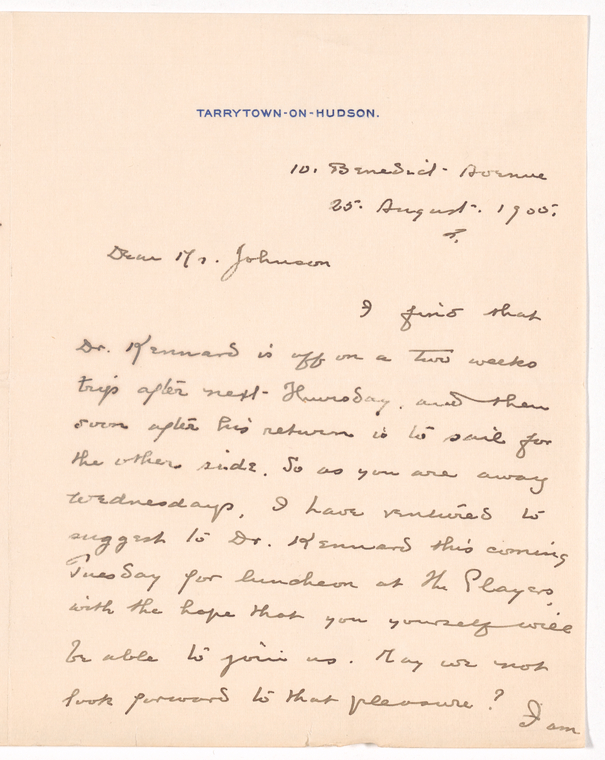 TARRYTOWN-ON-HUDSON.
10. Benedict Avenue
25. August. 1905.
Dear Mr. Johnson
I find that
Dr. Kennard is off on a two weeks
trip after next Thursday, and then
soon after his return is to sail for
the other side. So as you are away
Wednesdays, I have ventured to
suggest to Dr. Kennard this coming
Tuesday for luncheon at the Players,
with the hope that you yourself will
be able to join us. May we not
look forward to that pleasure?
I am